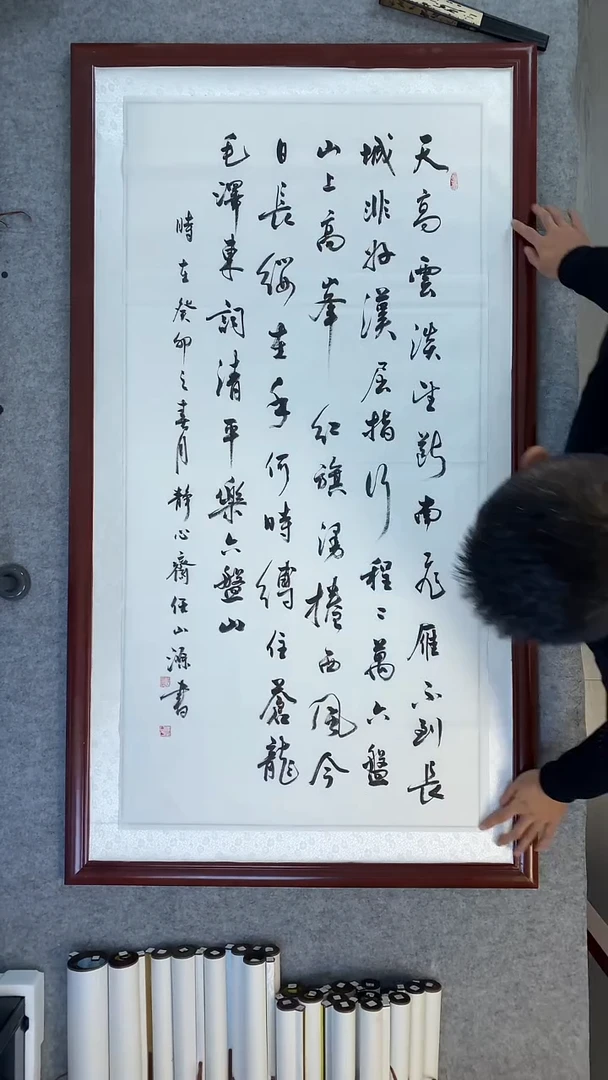 天高雲淡望斷南飛雁不到長
城非好漢屈指行程二萬六盤
山上高峯紅旗漫捲西風今
日長纓在手何時縛住蒼龍
毛澤東詞清平樂六盤山
時在癸卯之春月靜心齋任山源書